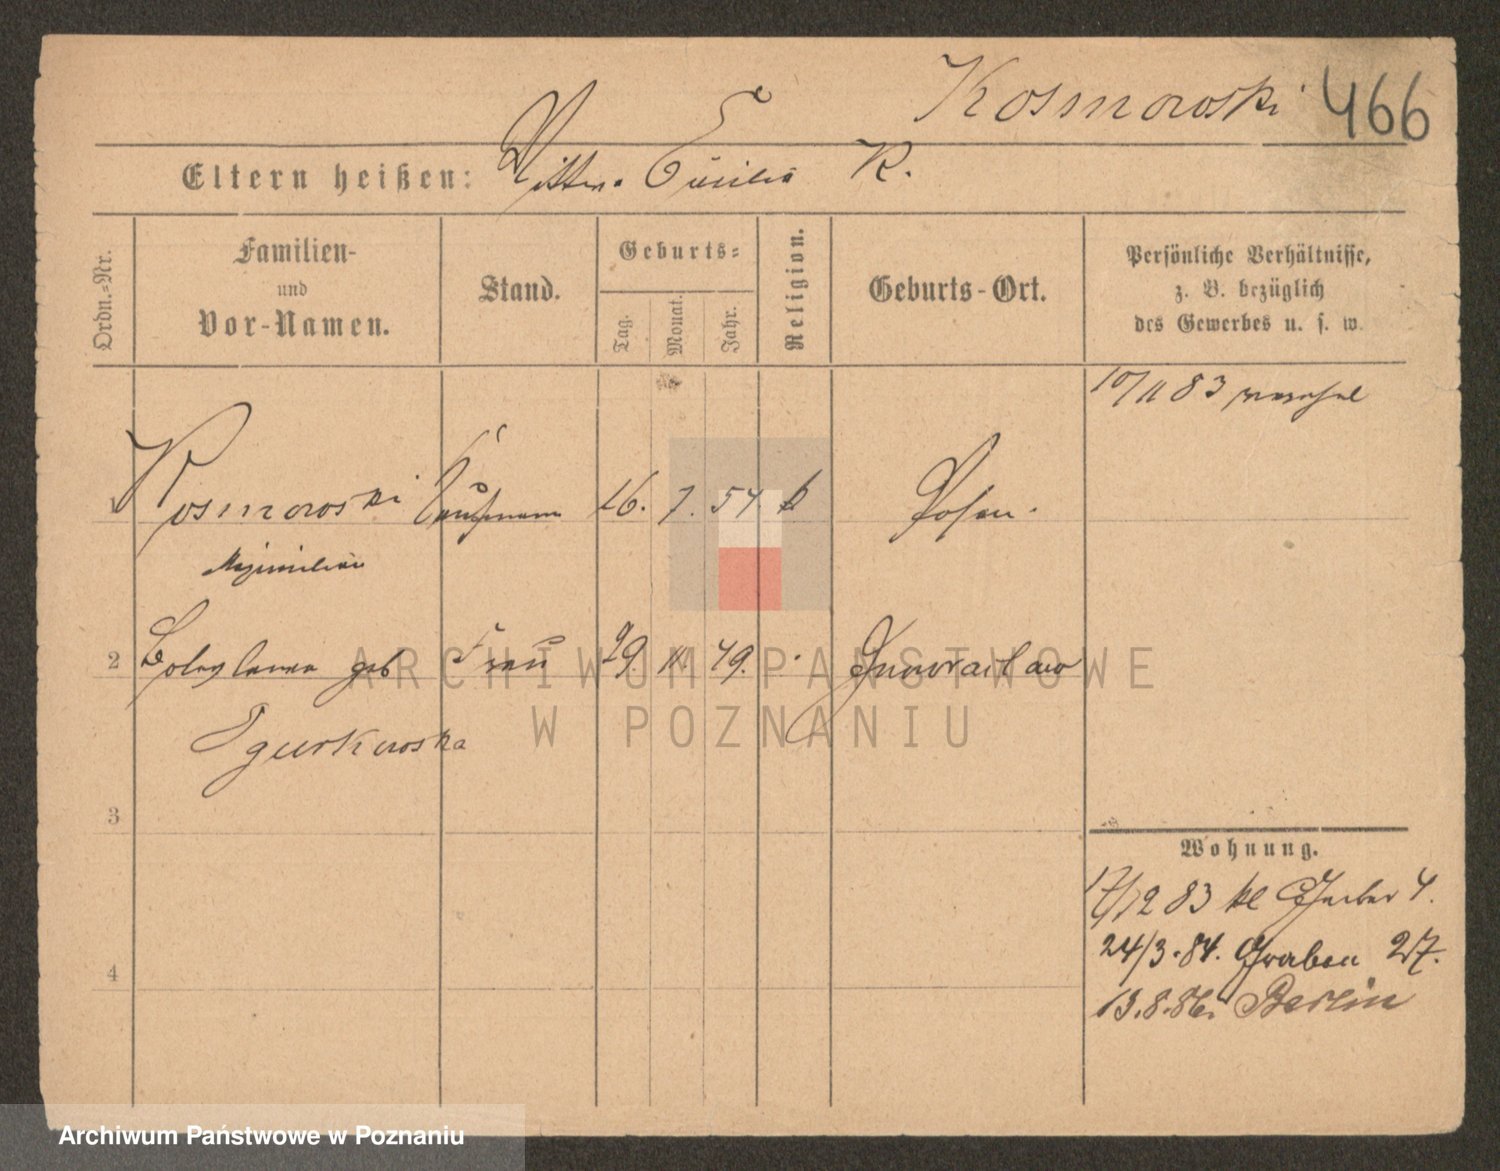 Kosmowski 466
Eltern heißen: Cäcilie K.
Ordn.-Nr.
Familien-
und
Vor-Namen.
Stand.
Geburts-
Tag.
Monat.
Jahr.
Religion.
Geburts-Ort.
Persönliche Verhältnisse,
z. B. bezüglich
des Gewerbes u. s. w.
10/11 83
1 Kosmowski Kaufmann 16. 7. 54. k Posen.
Maximilian
2 Boleslawa geb Frau 29. 11. 49. Inowraclaw
ARCHIWUM PAŃSTWOWE
W POZNANIU
3
Wohnung.
17/12 83 kl Gerber 4.
24/3.84. Graben 27.
4
13.8.86. Berlin
Archiwum Państwowe w Poznaniu